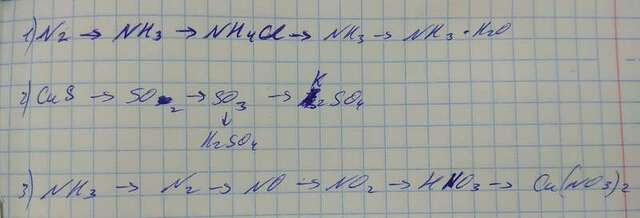 1) N2 → NH3 → NH4Cl → NH3 → NH3 · H2O
2) CuS → SO2 → SO3 → K2SO4
↓
H2SO4
3) NH3 → N2 → NO → NO2 → HNO3 → Cu(NO3)2